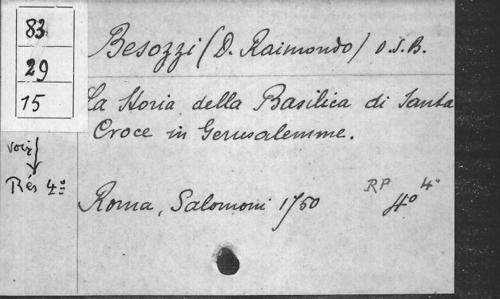 83
29
15
voir
Rés 4º
Besozzi (D. Raimondo) O.S.B.
La Storia della Basilica di Santa
Croce in Gerusalemme.
Roma, Salomoni 1750
RP 4º
4º